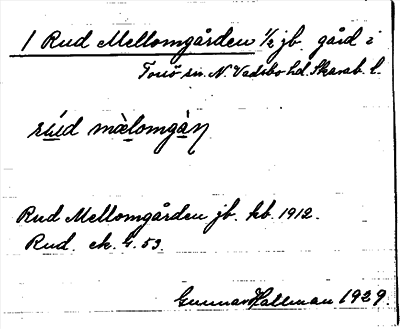 1 Rud Mellomgården 1/2 jb. gård i
Torsö sn. N. Vadsbo hd. Skarab. l.
rúd mælomgàṇ
Rud Mellomgården jb. kb. 1912.
Rud. ek. G. 53.
Gunnar Hallman 1929.